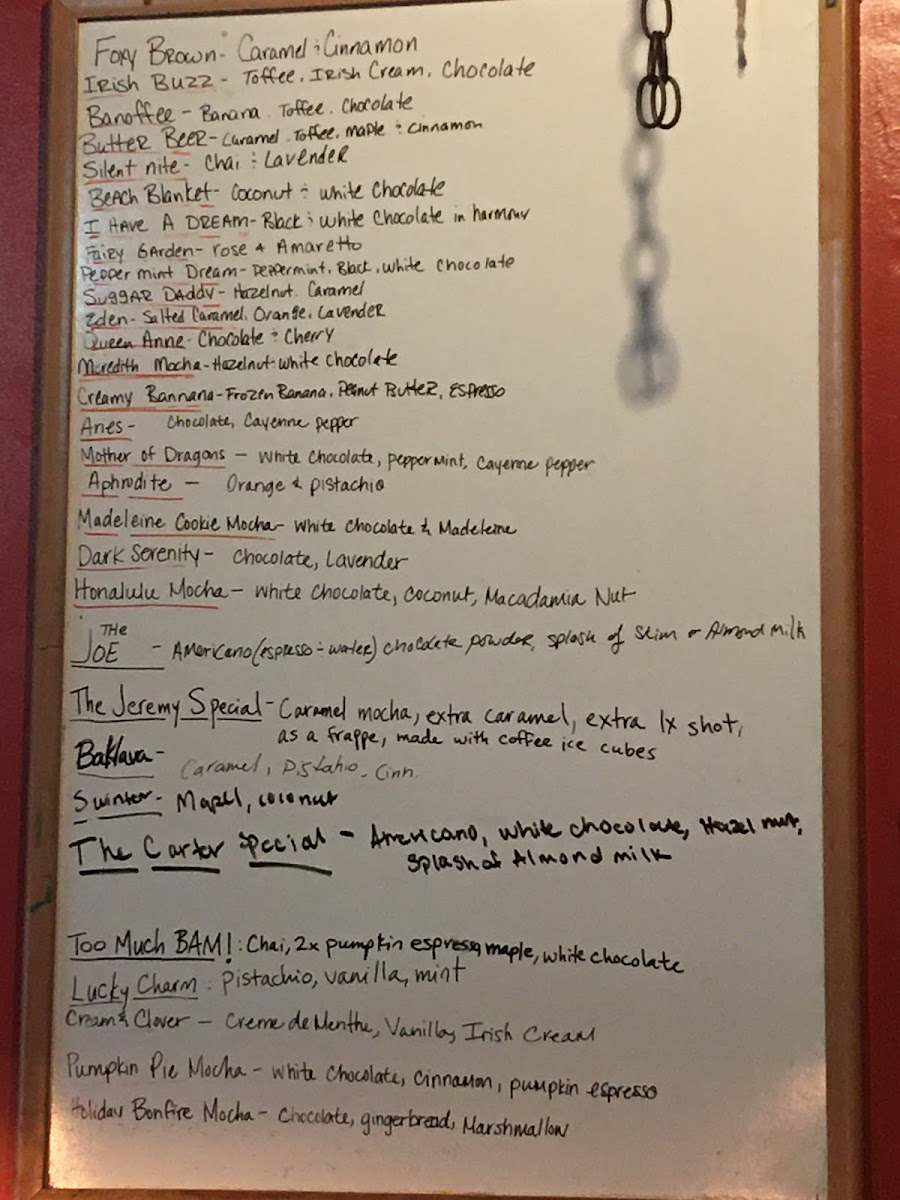 Foxy Brown - Caramel & Cinnamon
Irish Buzz - Toffee, Irish Cream, Chocolate
Banoffee - Banana, Toffee, Chocolate
Butter Beer - Caramel, Toffee, maple & cinnamon
Silent nite - Chai & Lavender
Beach Blanket - Coconut & white Chocolate
I HAVE A DREAM - Black & White Chocolate in harmony
Fairy Garden - rose & Amaretto
Pepper mint Dream - Peppermint, Black, White Chocolate
Suggar Daddy - Hazelnut, Caramel
Eden - Salted Caramel, Orange, Lavender
Queen Anne - Chocolate & Cherry
Meredith Mocha - Hazelnut & White Chocolate
Creamy Bannana - Frozen Banana, Peanut Butter, Espresso
Aries - Chocolate, Cayenne pepper
Mother of Dragons - White Chocolate, peppermint, Cayenne pepper
Aphrodite - Orange & pistachio
Madeleine Cookie Mocha - White Chocolate & Madeleine
Dark Serenity - Chocolate, Lavender
Honalulu Mocha - White Chocolate, Coconut, Macadamia Nut
THE
JOE - Americano (espresso & water) chocolate powder, splash of Skim or Almond Milk
The Jeremy Special - Caramel mocha, extra caramel, extra 1x shot,
as a frappe, made with coffee ice cubes
Baklava - Caramel, Pistahio, Cinn.
Swinter - Mapel, coconut
The Carter Special - Americano, white chocolate, Hazel nut,
Splash of Almond milk
Too Much BAM! : Chai, 2x pumpkin espresso, maple, white chocolate
Lucky Charm : pistachio, vanilla, mint
Cream & Clover - Creme de Menthe, Vanilla, Irish Cream
Pumpkin Pie Mocha - White Chocolate, Cinnamon, pumpkin espresso
Holiday Bonfire Mocha - Chocolate, gingerbread, Marshmallow